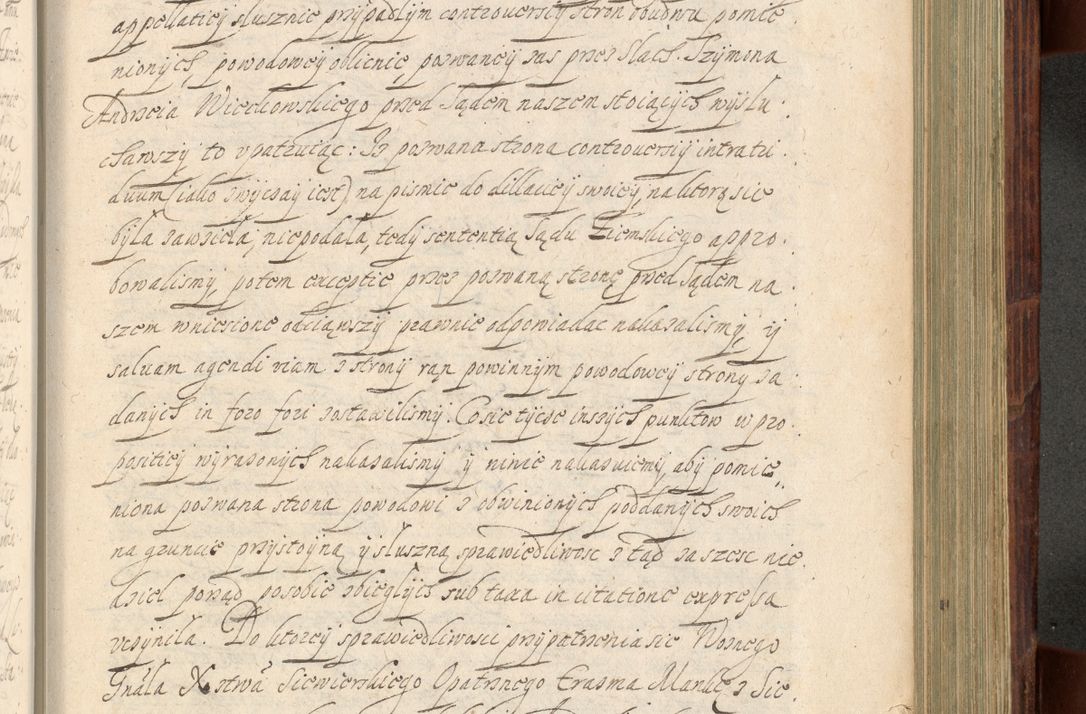 appellatiey słusznie przypadłym controuersiy stron obudwu pomie
nionych, powodowey oblicnie, pozwaney zas przez Slach. Szymona
Andrzeia Wieckowskiego przed Sądem naszem stoiących wysłu
chawszy to vpatruiąc: Iz pozwana strona controuersiy intratu
duum (iako zwyczay iest) na pismie do dillaciey swoiey, na ktorą sie
była zawzieła, niepodała, tedy sententią Sądu Ziemskiego appro
bowalismy, potem exceptie przez pozwaną stronę przed Sądem na
szem wniesione odciąwszy prawnie odpowiadac nakazalismy, y
saluam agendi viam z strony ran powinnym powodowey strony za
danych in foro fori zostawilismy. Co sie tycze inszych punktow w pro
positiey wyrazonych nakazalismy y ninie nakazuiemy, aby pomie
niona pozwana strona powodowi z obwinionych poddanych swoich
na gruncie przystoyną y słuszną sprawiedliwosc z tąd za szesc nie
dziel porząd posobie zbiegłych sub taxa in citatione expressa
vczyniła. Do ktorey sprawiedliwosci przypatrzenia sie Woznego
Gnała Xstwa Siewierskiego Opatrznego Erasma Mankę z Sie